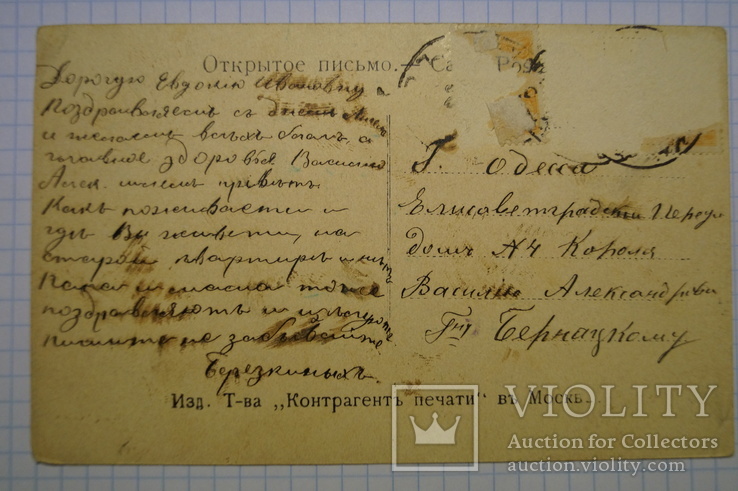 Открытое письмо. — Ca Pos
Дорогую Евдокию Ивановну
Поздравляемъ съ днемъ Ангела
и желаемъ всѣхъ благъ, а
главное здоровья Василію
Алек. шлемъ привѣтъ
Какъ поживаете и
гдѣ Вы живете, на
старой квартирѣ или нѣтъ
Папа и мама тоже
поздравляютъ и
Пишите не забывайте
Березкиныхъ.
Г. Одесса
Елисаветградскій Переул
домъ № 4 Короля
Василію Александрови
Гну Бернацкому
Изд. Т-ва „Контрагентъ печати" въ Москв.
VIOLITY
Auction for Collectors
www.auction.violity.com/